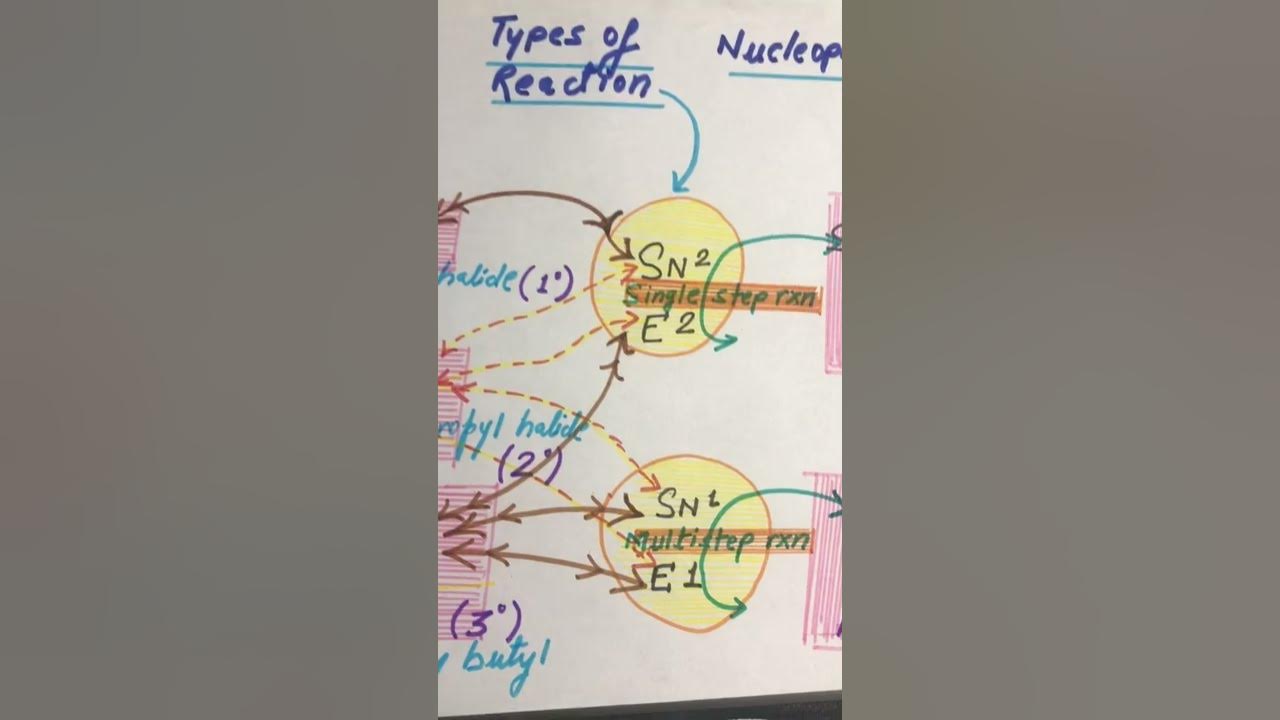 Types of
Reaction
Nucleop
SN²
halide (1°)
Single step rxn
E2
ropyl halide
(2°)
SN¹
Multistep rxn
E1
(3°)
y butyl